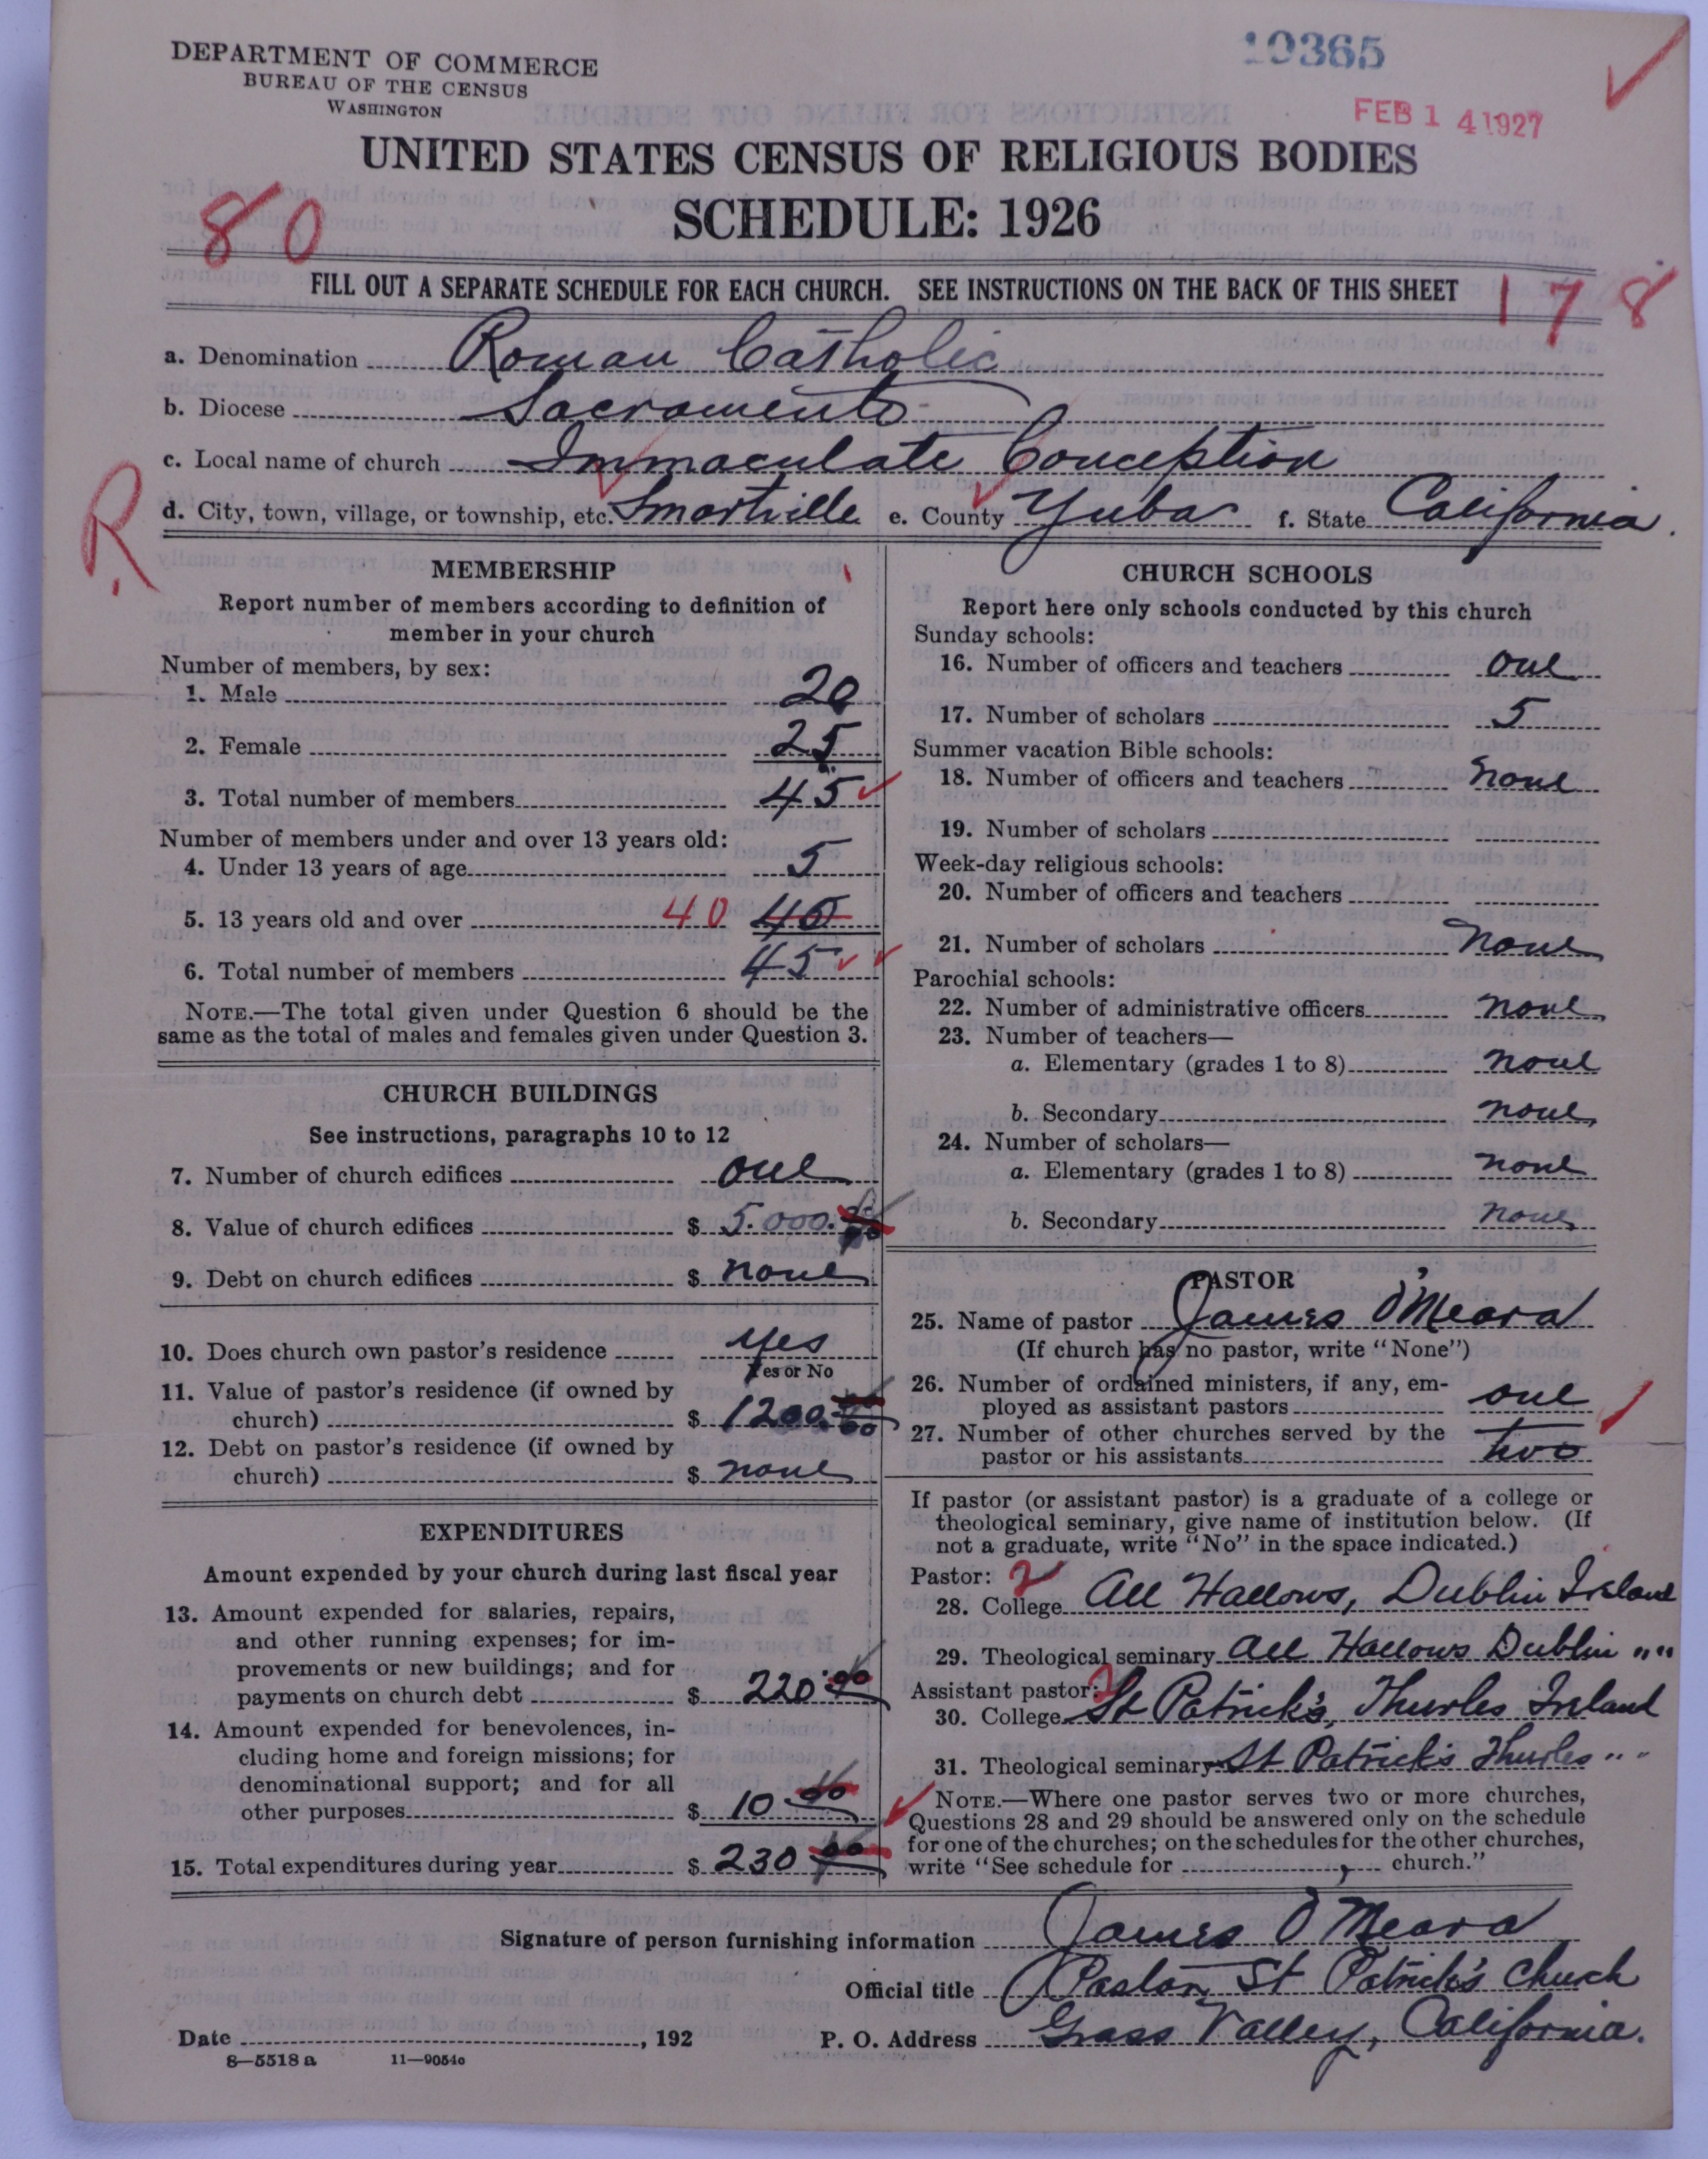 DEPARTMENT OF COMMERCE
BUREAU OF THE CENSUS
WASHINGTON
19365
FEB 14 1927
UNITED STATES CENSUS OF RELIGIOUS BODIES
SCHEDULE: 1926
80
FILL OUT A SEPARATE SCHEDULE FOR EACH CHURCH. SEE INSTRUCTIONS ON THE BACK OF THIS SHEET
178
a. Denomination Roman Catholic
b. Diocese Sacramento
c. Local name of church Immaculate Conception
R
d. City, town, village, or township, etc. Smartville e. County Yuba f. State California.
MEMBERSHIP
Report number of members according to definition of
member in your church
Number of members, by sex:
1. Male 20
2. Female 25
3. Total number of members 45
Number of members under and over 13 years old:
4. Under 13 years of age 5
5. 13 years old and over 40 40
6. Total number of members 45
NOTE.—The total given under Question 6 should be the
same as the total of males and females given under Question 3.
CHURCH BUILDINGS
See instructions, paragraphs 10 to 12
7. Number of church edifices one
8. Value of church edifices $ 5.000.00
9. Debt on church edifices $ none
10. Does church own pastor's residence yes
Yes or No
11. Value of pastor's residence (if owned by
church) $ 1200.00
12. Debt on pastor's residence (if owned by
church) $ none
EXPENDITURES
Amount expended by your church during last fiscal year
13. Amount expended for salaries, repairs,
and other running expenses; for im-
provements or new buildings; and for
payments on church debt $ 220.00
14. Amount expended for benevolences, in-
cluding home and foreign missions; for
denominational support; and for all
other purposes $ 10 00
15. Total expenditures during year $ 230 00
CHURCH SCHOOLS
Report here only schools conducted by this church
Sunday schools:
16. Number of officers and teachers one
17. Number of scholars 5
Summer vacation Bible schools:
18. Number of officers and teachers none
19. Number of scholars
Week-day religious schools:
20. Number of officers and teachers
21. Number of scholars none
Parochial schools:
22. Number of administrative officers none
23. Number of teachers—
a. Elementary (grades 1 to 8) none
b. Secondary none
24. Number of scholars—
a. Elementary (grades 1 to 8) none
b. Secondary none
PASTOR
25. Name of pastor James O'Meara
(If church has no pastor, write "None")
26. Number of ordained ministers, if any, em-
ployed as assistant pastors one
27. Number of other churches served by the
pastor or his assistants two
If pastor (or assistant pastor) is a graduate of a college or
theological seminary, give name of institution below. (If
not a graduate, write "No" in the space indicated.)
Pastor: 2
28. College All Hallows, Dublin Ireland
29. Theological seminary All Hallows Dublin " "
Assistant pastor: 2
30. College St Patrick's, Thurles Ireland
31. Theological seminary St Patrick's Thurles " "
NOTE.—Where one pastor serves two or more churches,
Questions 28 and 29 should be answered only on the schedule
for one of the churches; on the schedules for the other churches,
write "See schedule for , church."
Signature of person furnishing information James O'Meara
Official title Pastor, St Patrick's Church
Date , 192 P. O. Address Grass Valley, California.
8—5518 a 11—9054o